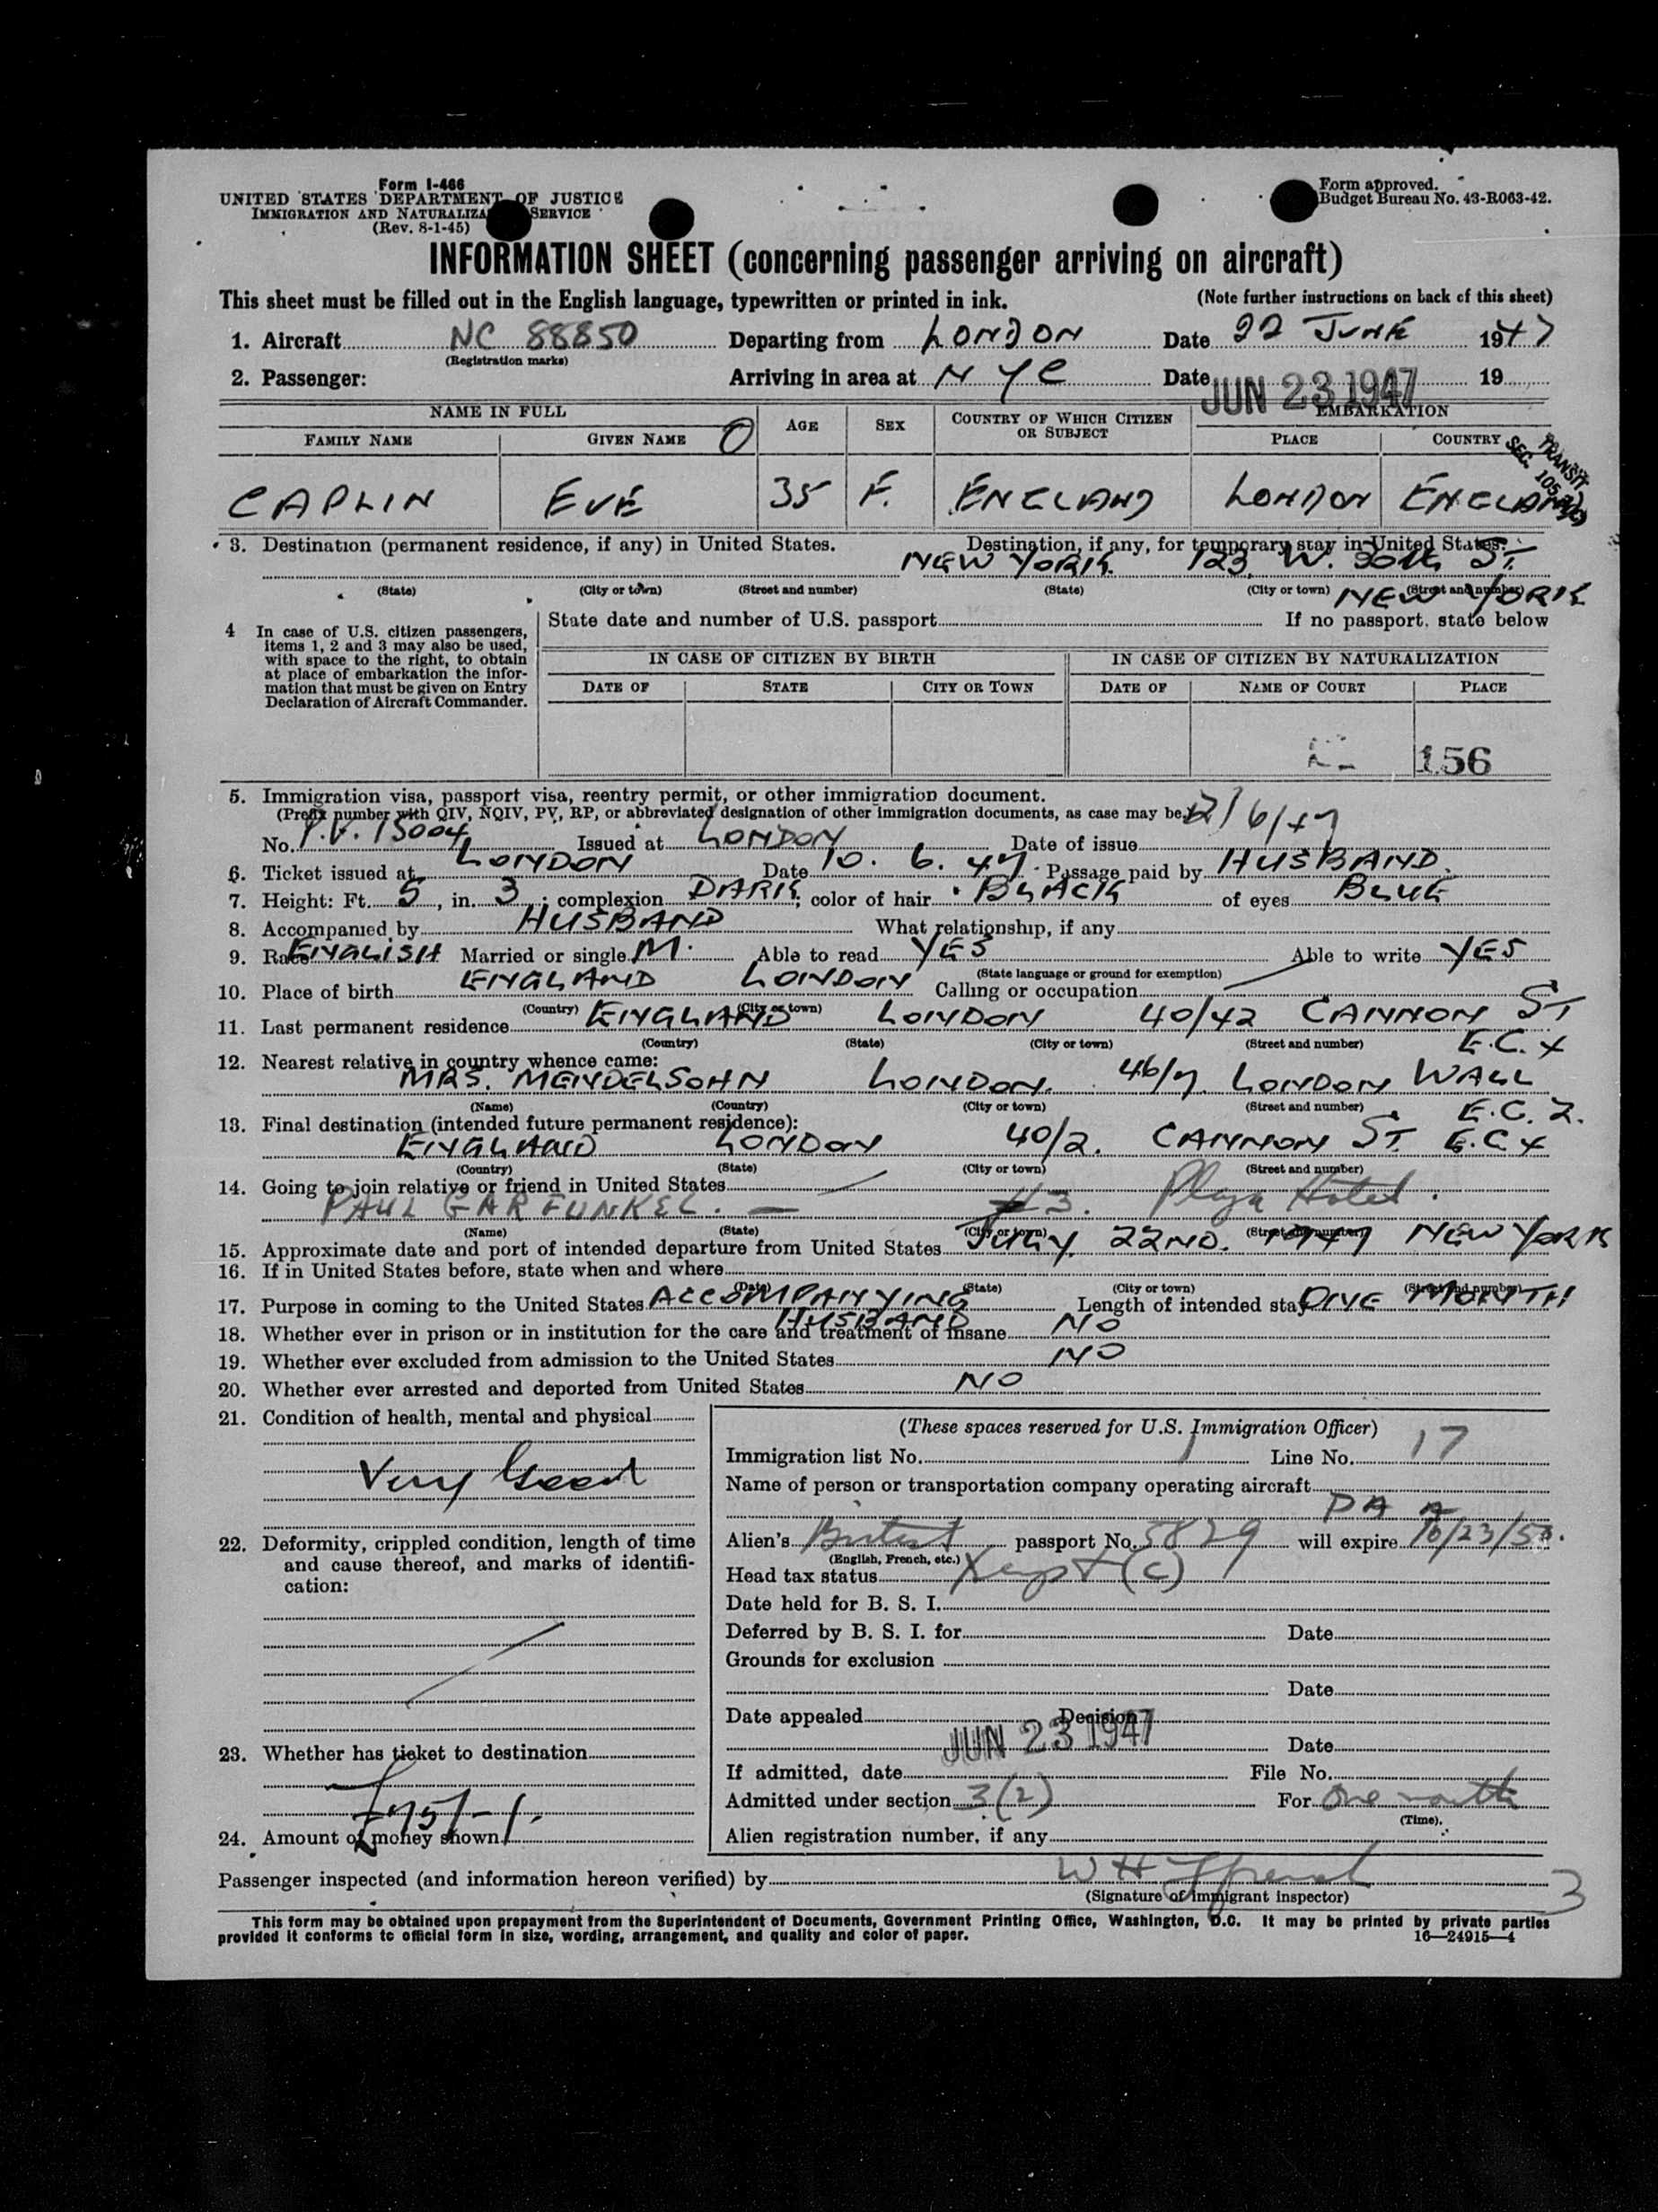 Form I-466
UNITED STATES DEPARTMENT OF JUSTICE
IMMIGRATION AND NATURALIZA SERVICE
(Rev. 8-1-45)
Form approved.
Budget Bureau No. 43-R063-42.
INFORMATION SHEET (concerning passenger arriving on aircraft)
This sheet must be filled out in the English language, typewritten or printed in ink. (Note further instructions on back of this sheet)
1. Aircraft NC 88850 Departing from LONDON Date 22 JUNE 1947
(Registration marks)
2. Passenger: Arriving in area at NYC Date JUN 23 1947 19
NAME IN FULL AGE SEX COUNTRY OF WHICH CITIZEN OR SUBJECT EMBARKATION
FAMILY NAME GIVEN NAME PLACE COUNTRY
TRANSIT
SEC. 105
CAPLIN EVE 35 F. ENGLAND LONDON ENGLAND
3. Destination (permanent residence, if any) in United States. Destination, if any, for temporary stay in United States.
NEW YORK 123 W. 30th ST.
(State) (City or town) (Street and number) (State) (City or town) (Street and number)
NEW YORK
4 In case of U.S. citizen passengers, items 1, 2 and 3 may also be used, with space to the right, to obtain at place of embarkation the information that must be given on Entry Declaration of Aircraft Commander.
State date and number of U.S. passport If no passport, state below
IN CASE OF CITIZEN BY BIRTH IN CASE OF CITIZEN BY NATURALIZATION
DATE OF STATE CITY OR TOWN DATE OF NAME OF COURT PLACE
156
5. Immigration visa, passport visa, reentry permit, or other immigration document.
(Prefix number with QIV, NQIV, PV, RP, or abbreviated designation of other immigration documents, as case may be.)
No. P.V. 15004 Issued at LONDON Date of issue 12/6/47
6. Ticket issued at LONDON Date 10. 6. 47. Passage paid by HUSBAND.
7. Height: Ft. 5, in. 3; complexion DARK; color of hair BLACK of eyes BLUE
8. Accompanied by HUSBAND What relationship, if any
9. Race ENGLISH Married or single M. Able to read YES Able to write YES
(State language or ground for exemption)
10. Place of birth ENGLAND LONDON Calling or occupation
(Country) (City or town)
11. Last permanent residence ENGLAND LONDON 40/42 CANNON ST
(Country) (State) (City or town) (Street and number) E.C.4
12. Nearest relative in country whence came:
MRS. MENDELSOHN LONDON. 46/7. LONDON WALL
(Name) (Country) (City or town) (Street and number) E.C.2.
13. Final destination (intended future permanent residence):
ENGLAND LONDON 40/2. CANNON ST. E.C.4
(Country) (State) (City or town) (Street and number)
14. Going to join relative or friend in United States
PAUL GARFUNKEL. Plaza Hotel.
(Name) (State) (City or town) (Street and number)
15. Approximate date and port of intended departure from United States JULY. 22ND. 1947 NEW YORK
16. If in United States before, state when and where
(Date) (State) (City or town) (Street and number)
17. Purpose in coming to the United States ACCOMPANYING HUSBAND Length of intended stay ONE MONTH
18. Whether ever in prison or in institution for the care and treatment of insane NO
19. Whether ever excluded from admission to the United States NO
20. Whether ever arrested and deported from United States NO
21. Condition of health, mental and physical
Very Good
22. Deformity, crippled condition, length of time and cause thereof, and marks of identification:
23. Whether has ticket to destination
24. Amount of money shown £75/-/-
(These spaces reserved for U.S. Immigration Officer)
Immigration list No. Line No. 17
Name of person or transportation company operating aircraft
PAA
Alien's passport No. 5829 will expire
(English, French, etc.)
Head tax status (C)
Date held for B. S. I.
Deferred by B. S. I. for Date
Grounds for exclusion
Date
Date appealed Decision
JUN 23 1947 Date
If admitted, date File No.
Admitted under section 3(2) For One month
(Time).
Alien registration number, if any
Passenger inspected (and information hereon verified) by
(Signature of immigrant inspector) 3
This form may be obtained upon prepayment from the Superintendent of Documents, Government Printing Office, Washington, D.C. It may be printed by private parties
provided it conforms to official form in size, wording, arrangement, and quality and color of paper. 16—24915—4